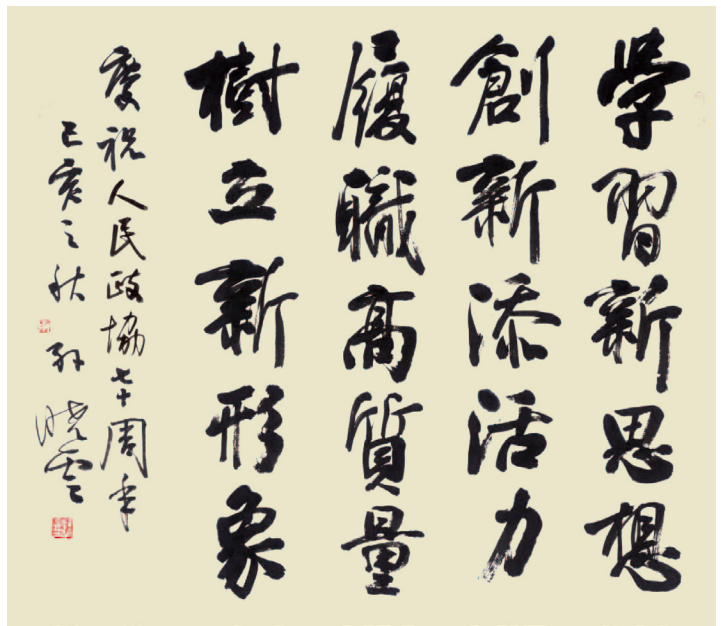 學習新思想
創新添活力
履職高質量
樹立新形象
慶祝人民政協七十周年
己亥之秋 孙曉雲